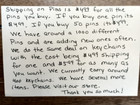 Shipping on Pins is $4.99 for all the
pins you buy. If you buy one pin is
$4.99. If you buy 50 pins is $4.99.
We have around a 1000 different
Pins and are adding new ones often.
We do the same deal on Keychains
with the cost being $4.99 shipping
for one and $4.99 for as many as
you want. We currently carry around
100 Keychains. We have Several more
items. Please visit our store.
Thank you so much!